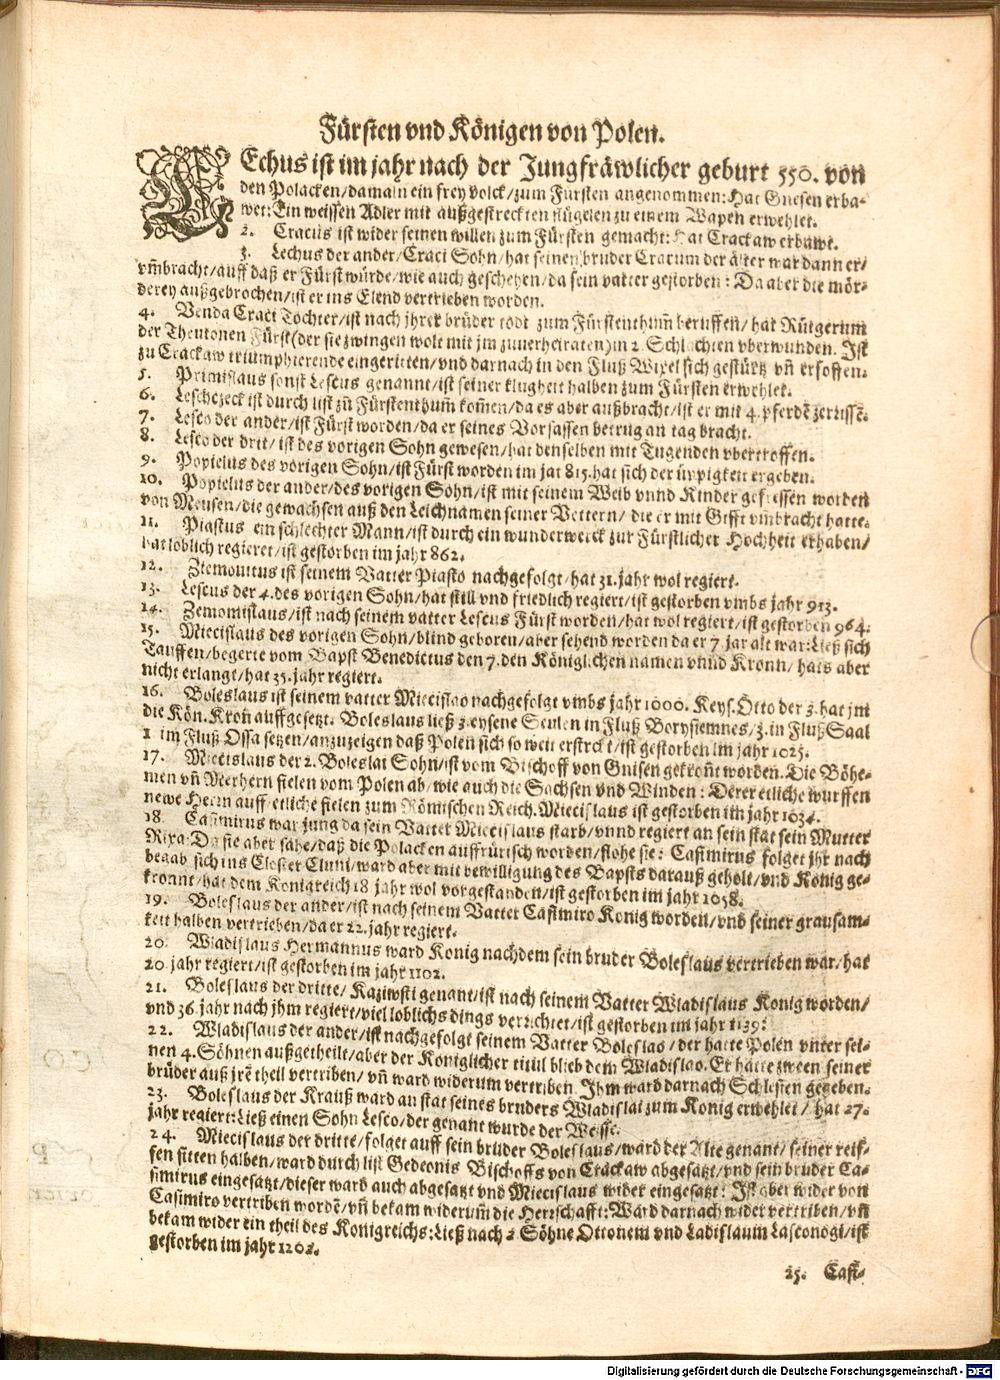 Fürsten vnd Königen von Polen.
LEchus ist im jahr nach der Jungfräwlicher geburt 550. von
den Polacken/damaln ein frey volck/zum Fürsten angenommen: Hat Gnesen erba-
wet: Ein weissen Adler mit außgestreckten flügelen zu einem Wapen erwehlet.
2. Cracus ist wider seinen willen zum Fürsten gemacht: Hat Crackaw erbawt.
3. Lechus der ander/Craci Sohn/hat seinen bruder Cracum der älter war dann er/
vm̃bracht/auff daß er Fürst würde/wie auch geschehen/da sein vatter gestorben: Da aber die mör-
derey außgebrochen/ist er ins Elend vertrieben worden.
4. Venda Craci Tochter/ist nach jhrer brüder todt zum Fürstenthum̃ beruffen/hat Rütgerum
der Theutonen Fürst(der sie zwingen wolt mit jm zuuerheiraten)in 2. Schlachten vberwunden. Ist
zu Crackaw triumphierende eingeritten/vnd darnach in den Fluß Wixel sich gestürtz vñ ersoffen.
5. Primislaus sonst Lescus genannt/ist seiner klugheit halben zum Fürsten erwehlet.
6. Leschczeck ist durch list zũ Fürstenthum̃ kom̃en/da es aber außbracht/ist er mit 4. pferdẽ zerrissẽ.
7. Lesco der ander/ist Fürst worden/da er seines Vorsassen betrug an tag bracht.
8. Lesco der drit/ist des vorigen Sohn gewesen/hat denselben mit Tugenden vbertroffen.
9. Popielus des vorigen Sohn/ist Fürst worden im jar 815. hat sich der üppigkeit ergeben.
10. Popielus der ander/des vorigen Sohn/ist mit seinem Weib vnnd Kinder gefressen worden
von Meusen/die gewachsen auß den Leichnamen seiner Vettern/die er mit Gifft vmbracht hatte.
11. Piastus ein schlechter Mann/ist durch ein wunderwerck zur Fürstlicher Hochheit erhaben/
hat löblich regieret/ist gestorben im jahr 862.
12. Ziemouitus ist seinem Vatter Piasto nachgefolgt/hat 31. jahr wol regiert.
13. Lescus der 4. des vorigen Sohn/hat still vnd friedlich regiert/ist gestorben vmbs jahr 913.
14. Zemomislaus/ist nach seinem vatter Lescus Fürst worden/hat wol regiert/ist gestorben 964.
15. Miecislaus des vorigen Sohn/blind geboren/aber sehend worden da er 7. jar alt war: Ließ sich
Tauffen/begerte vom Bapst Benedictus den 7. den Königlichen namen vnnd Kronn/hats aber
nicht erlangt/hat 35. jahr regiert.
16. Boleslaus ist seinem vatter Miecislao nachgefolgt vmbs jahr 1000. Keys. Otto der 3. hat jm
die Kön. Kroñ auffgesetzt. Boleslaus ließ 3. eysene Seulen in Fluß Borystemnes/3. in Fluß Saal
1 im Fluß Ossa setzen/anzuzeigen daß Polen sich so weit erstreckt/ist gestorben im jahr 1025.
17. Miecislaus der 2. Boleslai Sohn/ist vom Bischoff von Gnisen gekroñt worden. Die Böhe-
men vñ Merhern fielen vom Polen ab/wie auch die Sachsen vnd Winden: Derer etliche wurffen
newe Herrn auff/etliche fielen zum Römischen Reich. Miecislaus ist gestorben im jahr 1034.
18. Casimirus war jung da sein Vatter Miecislaus starb/vnnd regiert an sein stat sein Mutter
Rixa. Da sie aber sahe/daß die Polacken auffrürisch worden/flohe sie: Casimirus folget jhr nach
begab sich ins Closter Cluni/ward aber mit bewilligung des Bapsts darauß geholt/vnd König ge-
kronnt/hat dem Königreich 18 jahr wol vorgestanden/ist gestorben im jahr 1058.
19. Boleslaus der ander/ist nach seinem Vatter Casimiro Konig worden/vnd seiner grausam-
keit halben vertrieben/da er 22. jahr regiert.
20. Wladislaus Hermannus ward Konig nachdem sein bruder Boleslaus vertrieben war/hat
20 jahr regiert/ist gestorben im jahr 1102.
21. Boleslaus der dritte/Kaziwsti genant/ist nach seinem Vatter Wladislaus Konig worden/
vnd 36. jahr nach jhm regiert/viel löblichs dings verrichtet/ist gestorben im jahr 1139:
22. Wladislaus der ander/ist nachgefolgt seinem Vatter Boleslao/der hatte Polen vnter sei-
nen 4. Söhnen außgetheilt/aber der Königlicher titul blieb dem Wladislao. Er hatte zween seiner
brüder auß jrẽ theil vertriben/vñ ward widerum vertriben. Ihm ward darnach Schlesien gegeben.
23. Boleslaus der Krauß ward an stat seines bruders Wladislai zum Konig erwehlet/hat 27.
jahr regiert: Ließ einen Sohn Lesco/der genant wurde der Weisse.
24. Miecislaus der dritte/folget auff sein bruder Boleslaus/ward der Alte genant/seiner reif-
fen sitten halben/ward durch list Gedeonis Bischoffs von Crackaw abgesatzt/vnd sein bruder Ca-
simirus eingesatzt/dieser ward auch abgesatzt vnd Miecislaus wider eingesatzt: Ist aber wider von
Casimiro vertriben wordẽ/vñ bekam widerum̃ die Herrschafft: Ward darnach wider vertriben/vñ
bekam wider ein theil des Konigreichs: Ließ nach 2 Söhne Ottonem vnd Ladislaum Lasconogi/ist
gestorben im jahr 1202.
25. Casi-
Digitalisierung gefördert durch die Deutsche Forschungsgemeinschaft - DFG